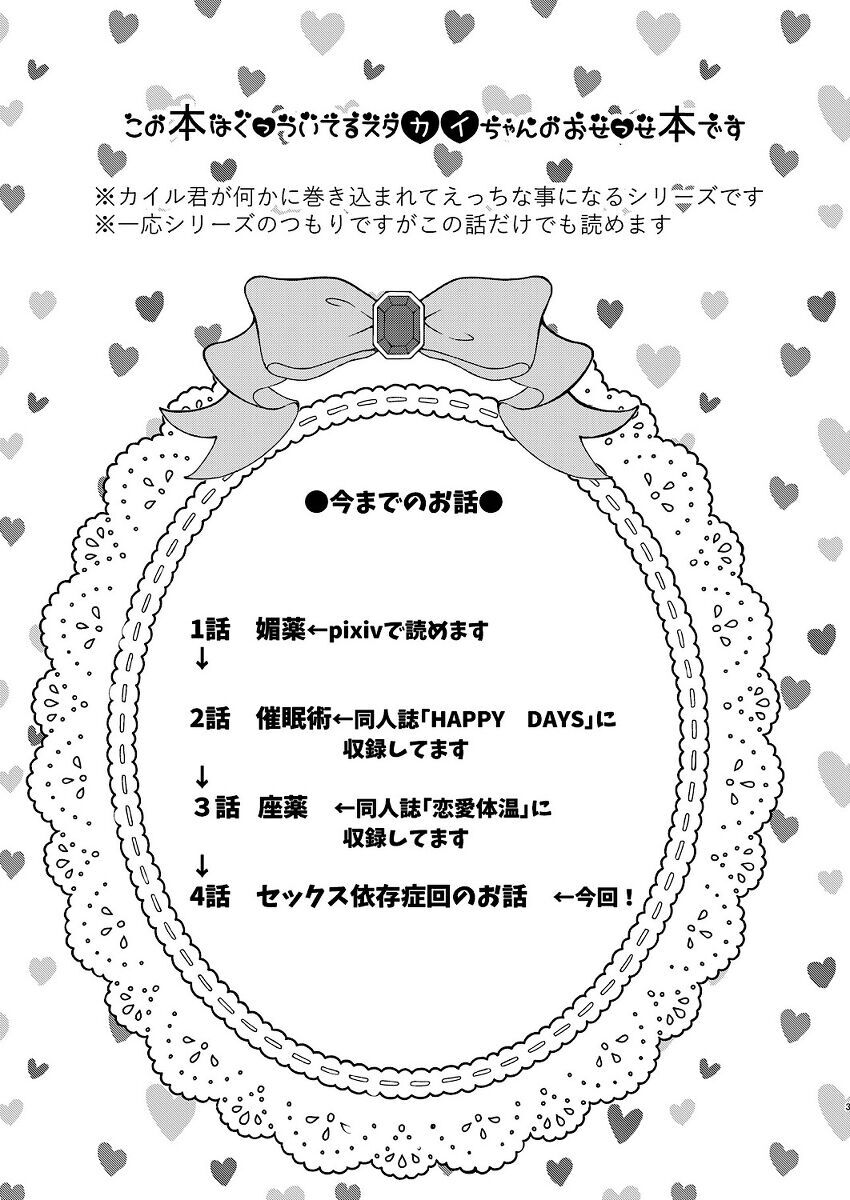 この本はくっついてるスタカイちゃんのおせっせ本です
※カイル君が何かに巻き込まれてえっちな事になるシリーズです
※一応シリーズのつもりですがこの話だけでも読めます
●今までのお話●
1話　媚薬←pixivで読めます
↓
2話　催眠術←同人誌「HAPPY　DAYS」に
収録してます
↓
３話　座薬　←同人誌「恋愛体温」に
収録してます
↓
4話　セックス依存症回のお話　←今回！
3